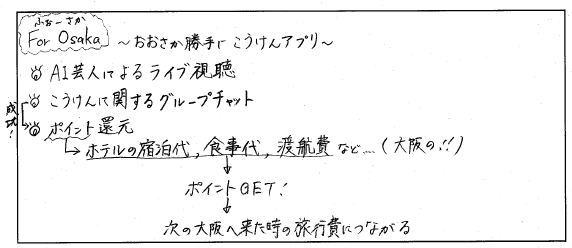 ふぉーさか
For Osaka ～おおさか勝手にこうけんアプリ～
AI芸人によるライブ視聴
こうけんに関するグループチャット
成功！
ポイント還元
ホテルの宿泊代，食事代，渡航費など…（大阪の!!）
ポイントGET！
次の大阪へ来た時の旅行費につながる